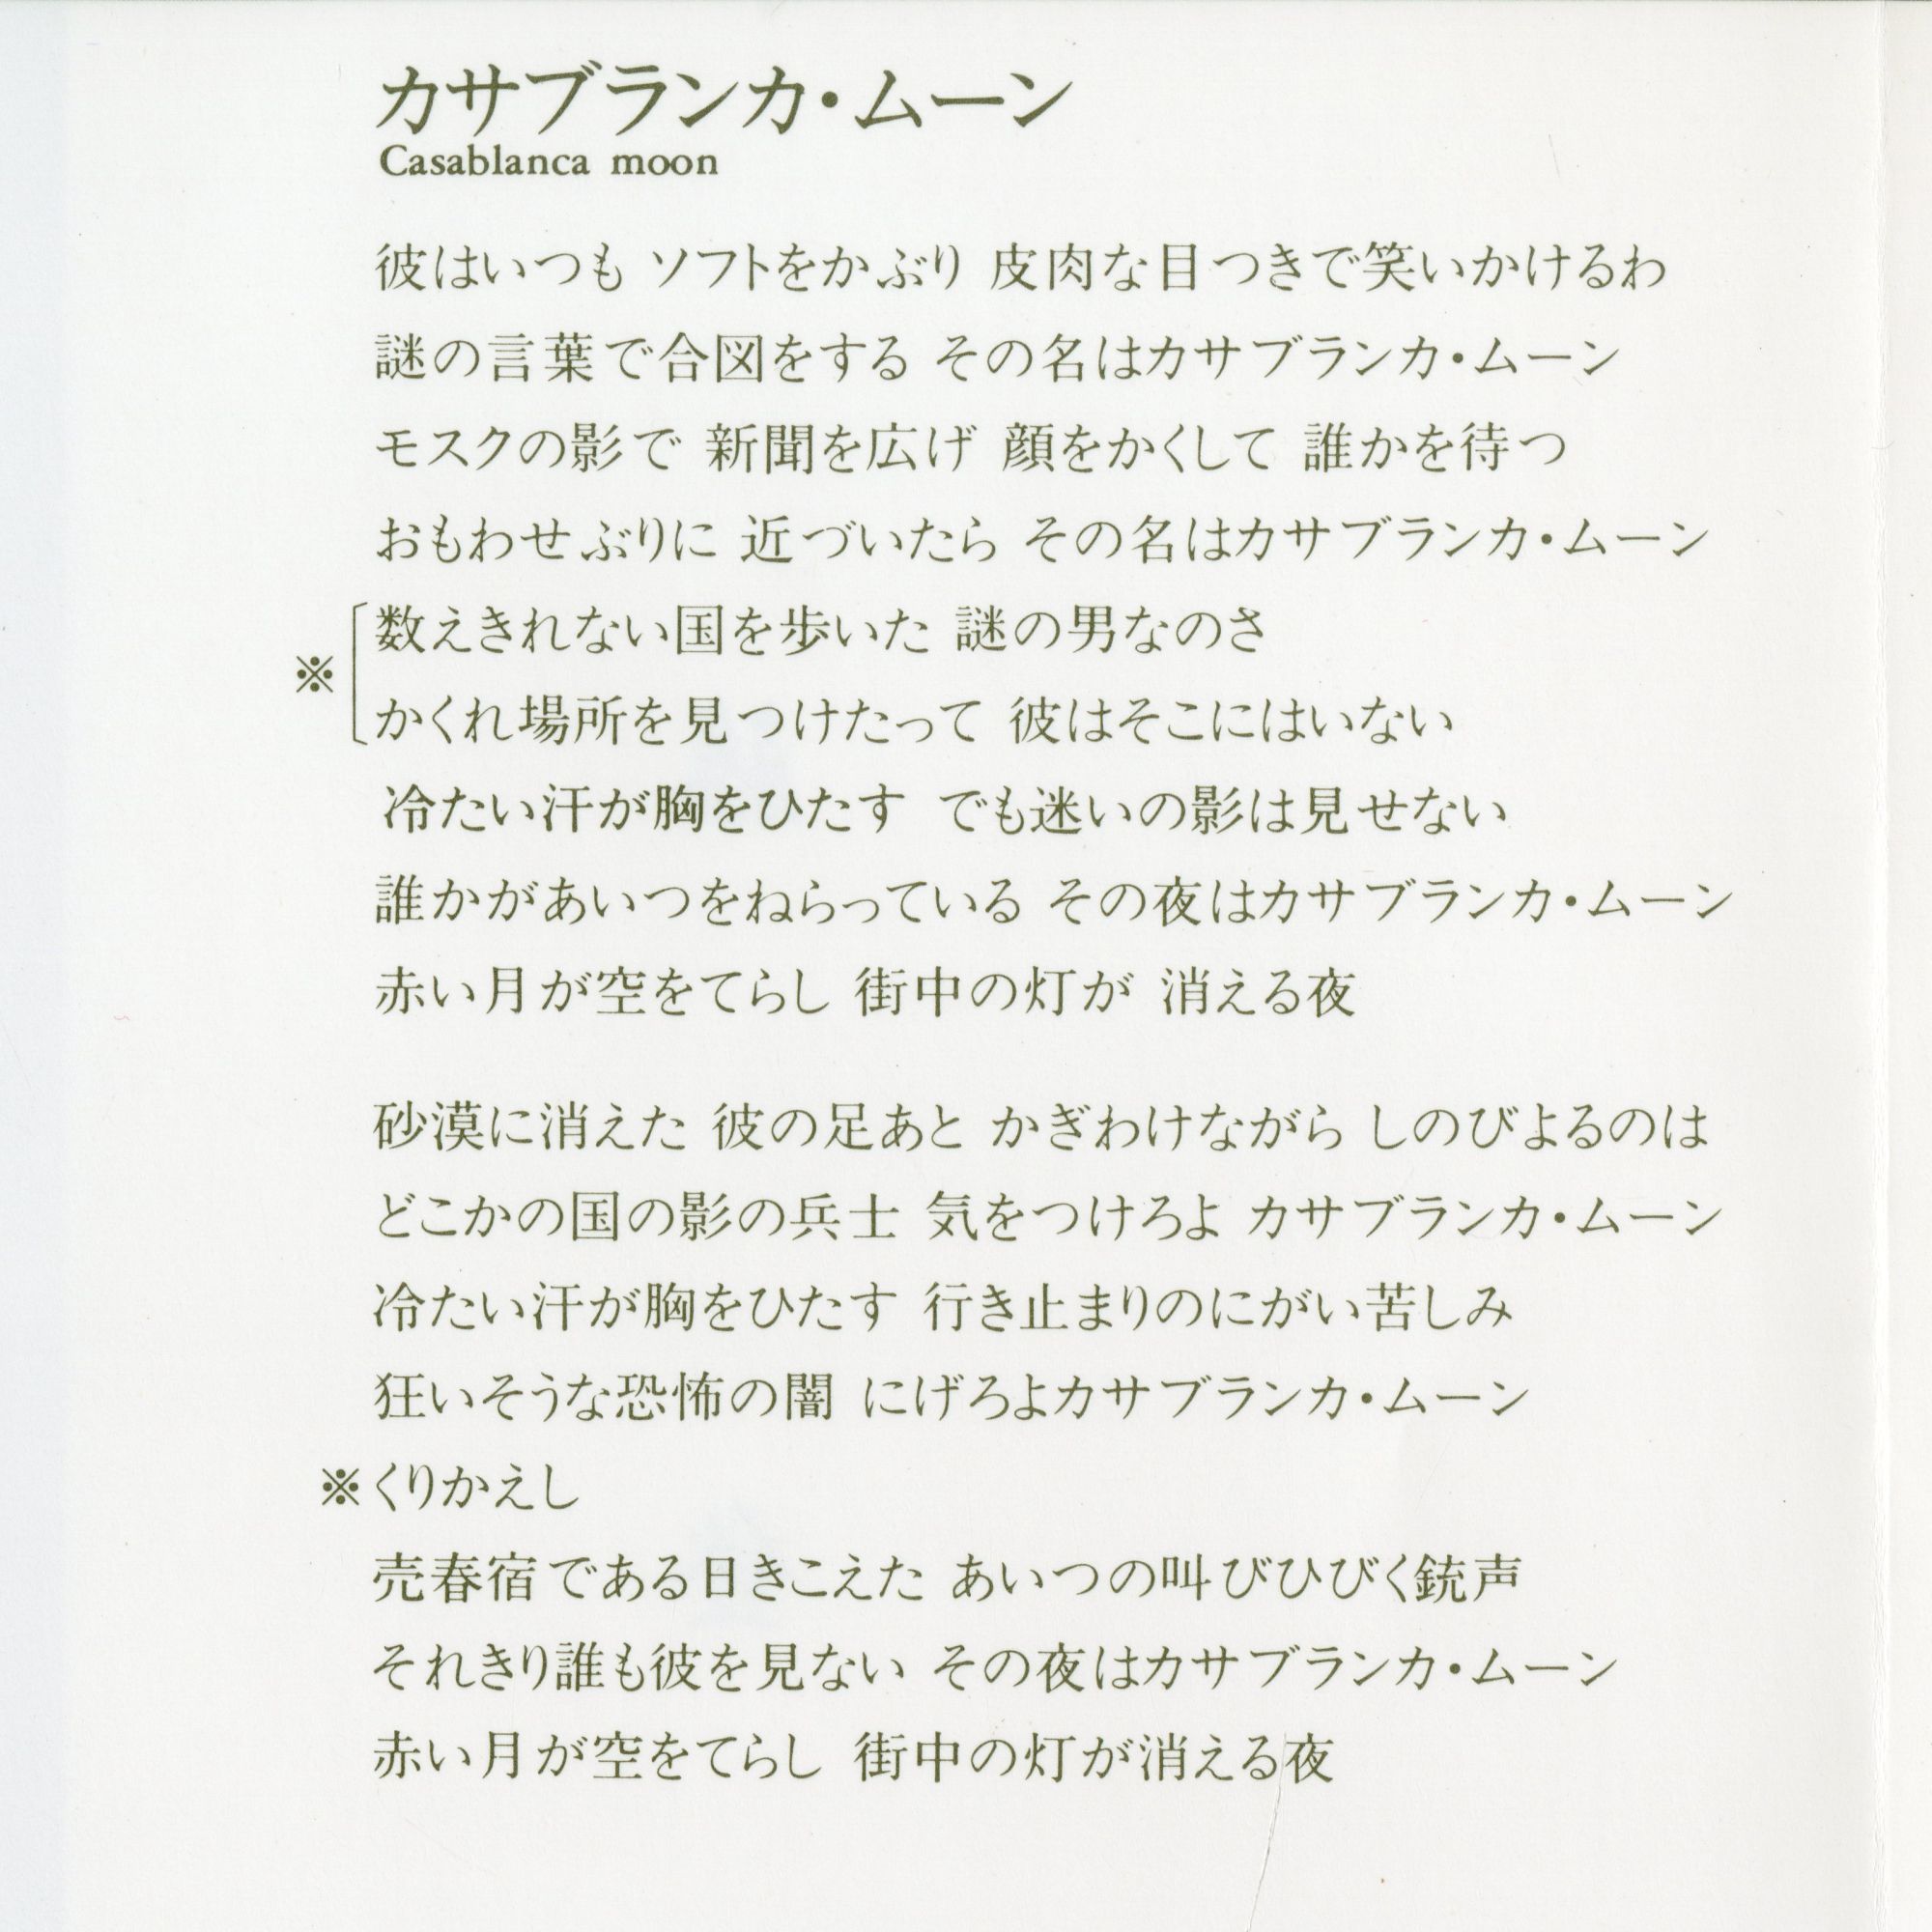 カサブランカ・ムーン
Casablanca moon
彼はいつも ソフトをかぶり 皮肉な目つきで笑いかけるわ
謎の言葉で合図をする その名はカサブランカ・ムーン
モスクの影で 新聞を広げ 顔をかくして 誰かを待つ
おもわせぶりに 近づいたら その名はカサブランカ・ムーン
数えきれない国を歩いた 謎の男なのさ
※
かくれ場所を見つけたって 彼はそこにはいない
冷たい汗が胸をひたす でも迷いの影は見せない
誰かがあいつをねらっている その夜はカサブランカ・ムーン
赤い月が空をてらし 街中の灯が 消える夜
砂漠に消えた 彼の足あと かぎわけながら しのびよるのは
どこかの国の影の兵士 気をつけろよ カサブランカ・ムーン
冷たい汗が胸をひたす 行き止まりのにがい苦しみ
狂いそうな恐怖の闇 にげろよカサブランカ・ムーン
※くりかえし
売春宿である日きこえた あいつの叫びひびく銃声
それきり誰も彼を見ない その夜はカサブランカ・ムーン
赤い月が空をてらし 街中の灯が消える夜